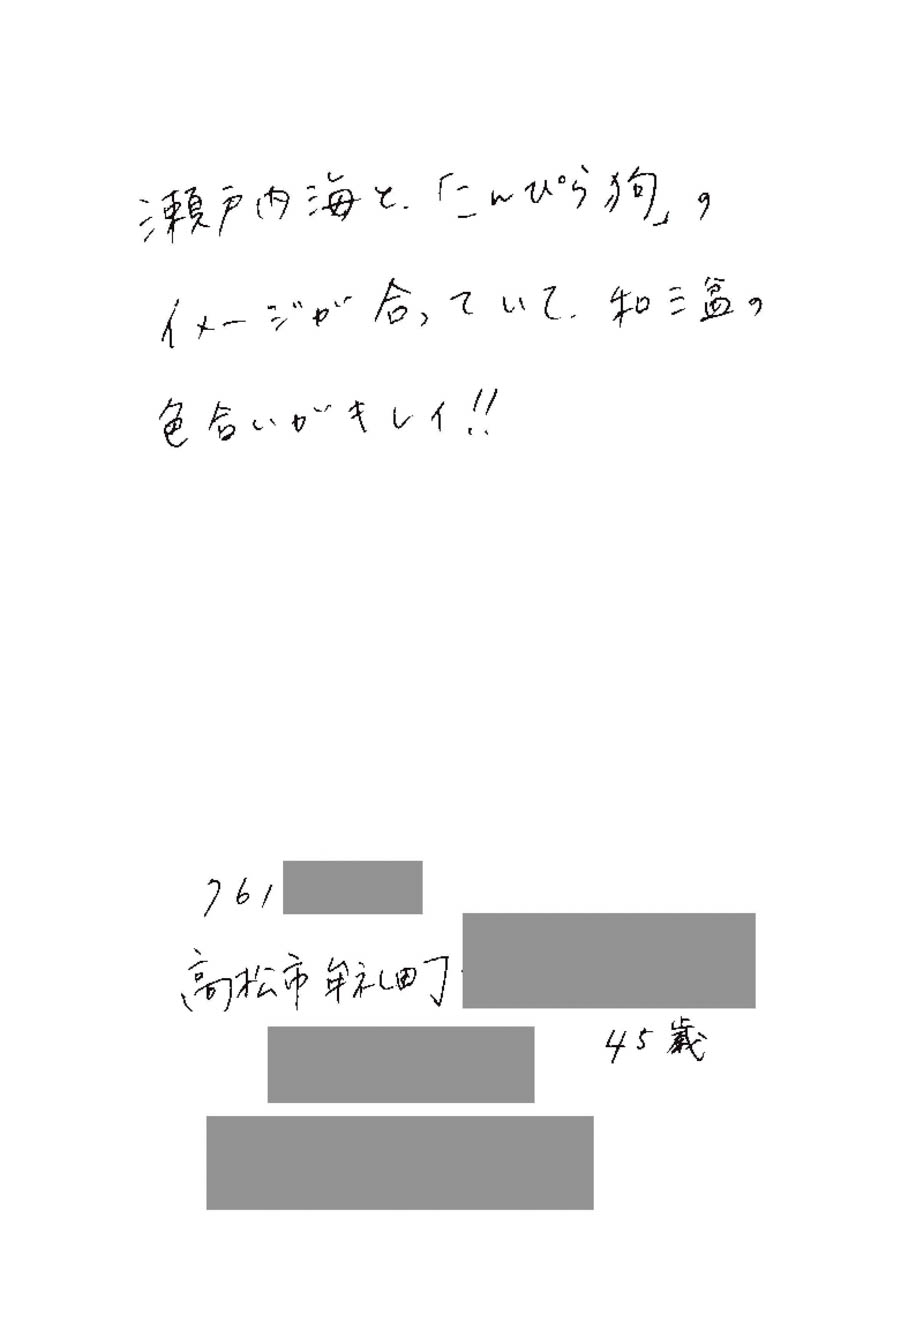 瀬戸内海と、「こんぴら狗」の
イメージが合っていて、和三盆の
色合いがキレイ!!
761
高松市牟礼町
45歳